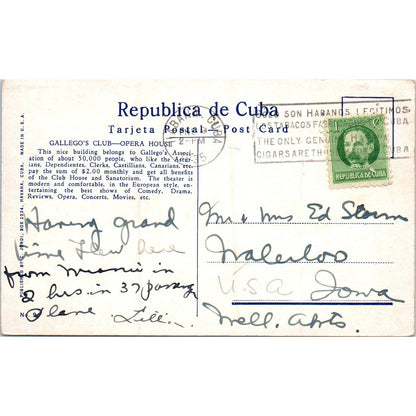 Republica de Cuba
Tarjeta Postal Post Card
GALLEGO'S CLUB—OPERA HOUSE
This nice building belongs to Gallego's Associ-
ation of about 50,000 people, who like the Astur-
ians, Dependientes, Clerks, Castillians, Canarians, etc.
pay the sum of $2.00 monthly and get all benefits
of the Club House and Sanatorium. The theater is
modern and comfortable, in the European style, en-
tertaining the best shows of Comedy, Dramas,
Reviews, Opera, Concerts, Movies, etc.
MADE IN U.S.A.
HAVANA, CUBA.
PUBLISHED BY
CUBA
2-PM
SOLO SON HABANOS LEGITIMOS
LOS TABACOS CUBA
THE ONLY GENUINE HAVANA
CIGARS ARE THOSE
REPUBLICA DE CUBA
Having grand
time Flew here
from Miami in
2 hrs in 37 passeng
Plane Lill.
Mr & Mrs Ed Storm
Waterloo
U.S.A Iowa
Mell. Apts.